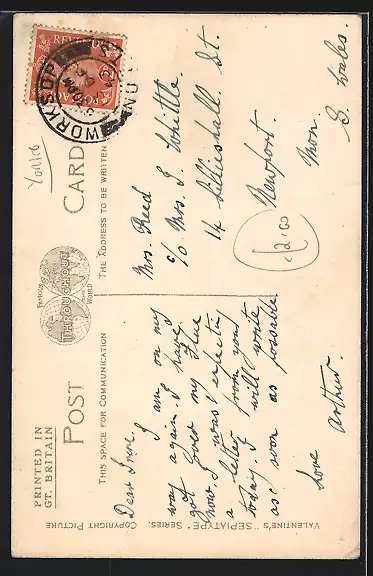 PRINTED IN
GT. BRITAIN
POST CARD
FAMOUS
THROUGHOUT
WORLD
THIS SPACE FOR COMMUNICATION
THE ADDRESS TO BE WRITTEN
REVENUE
POSTAGE
WORKSOP
Yorks
Dear Irene.
I am on my
way again. I have
got over my flue
now. I was expecting
a letter from you
today. I will write
as soon as possible
Love Arthur.
Mrs. Reed
c/o Mrs. J. Whittle.
14 Lilleshall St.
Newport.
Mon.
S. Wales.
£2.00
VALENTINE'S "SEPIATYPE" SERIES. COPYRIGHT PICTURE